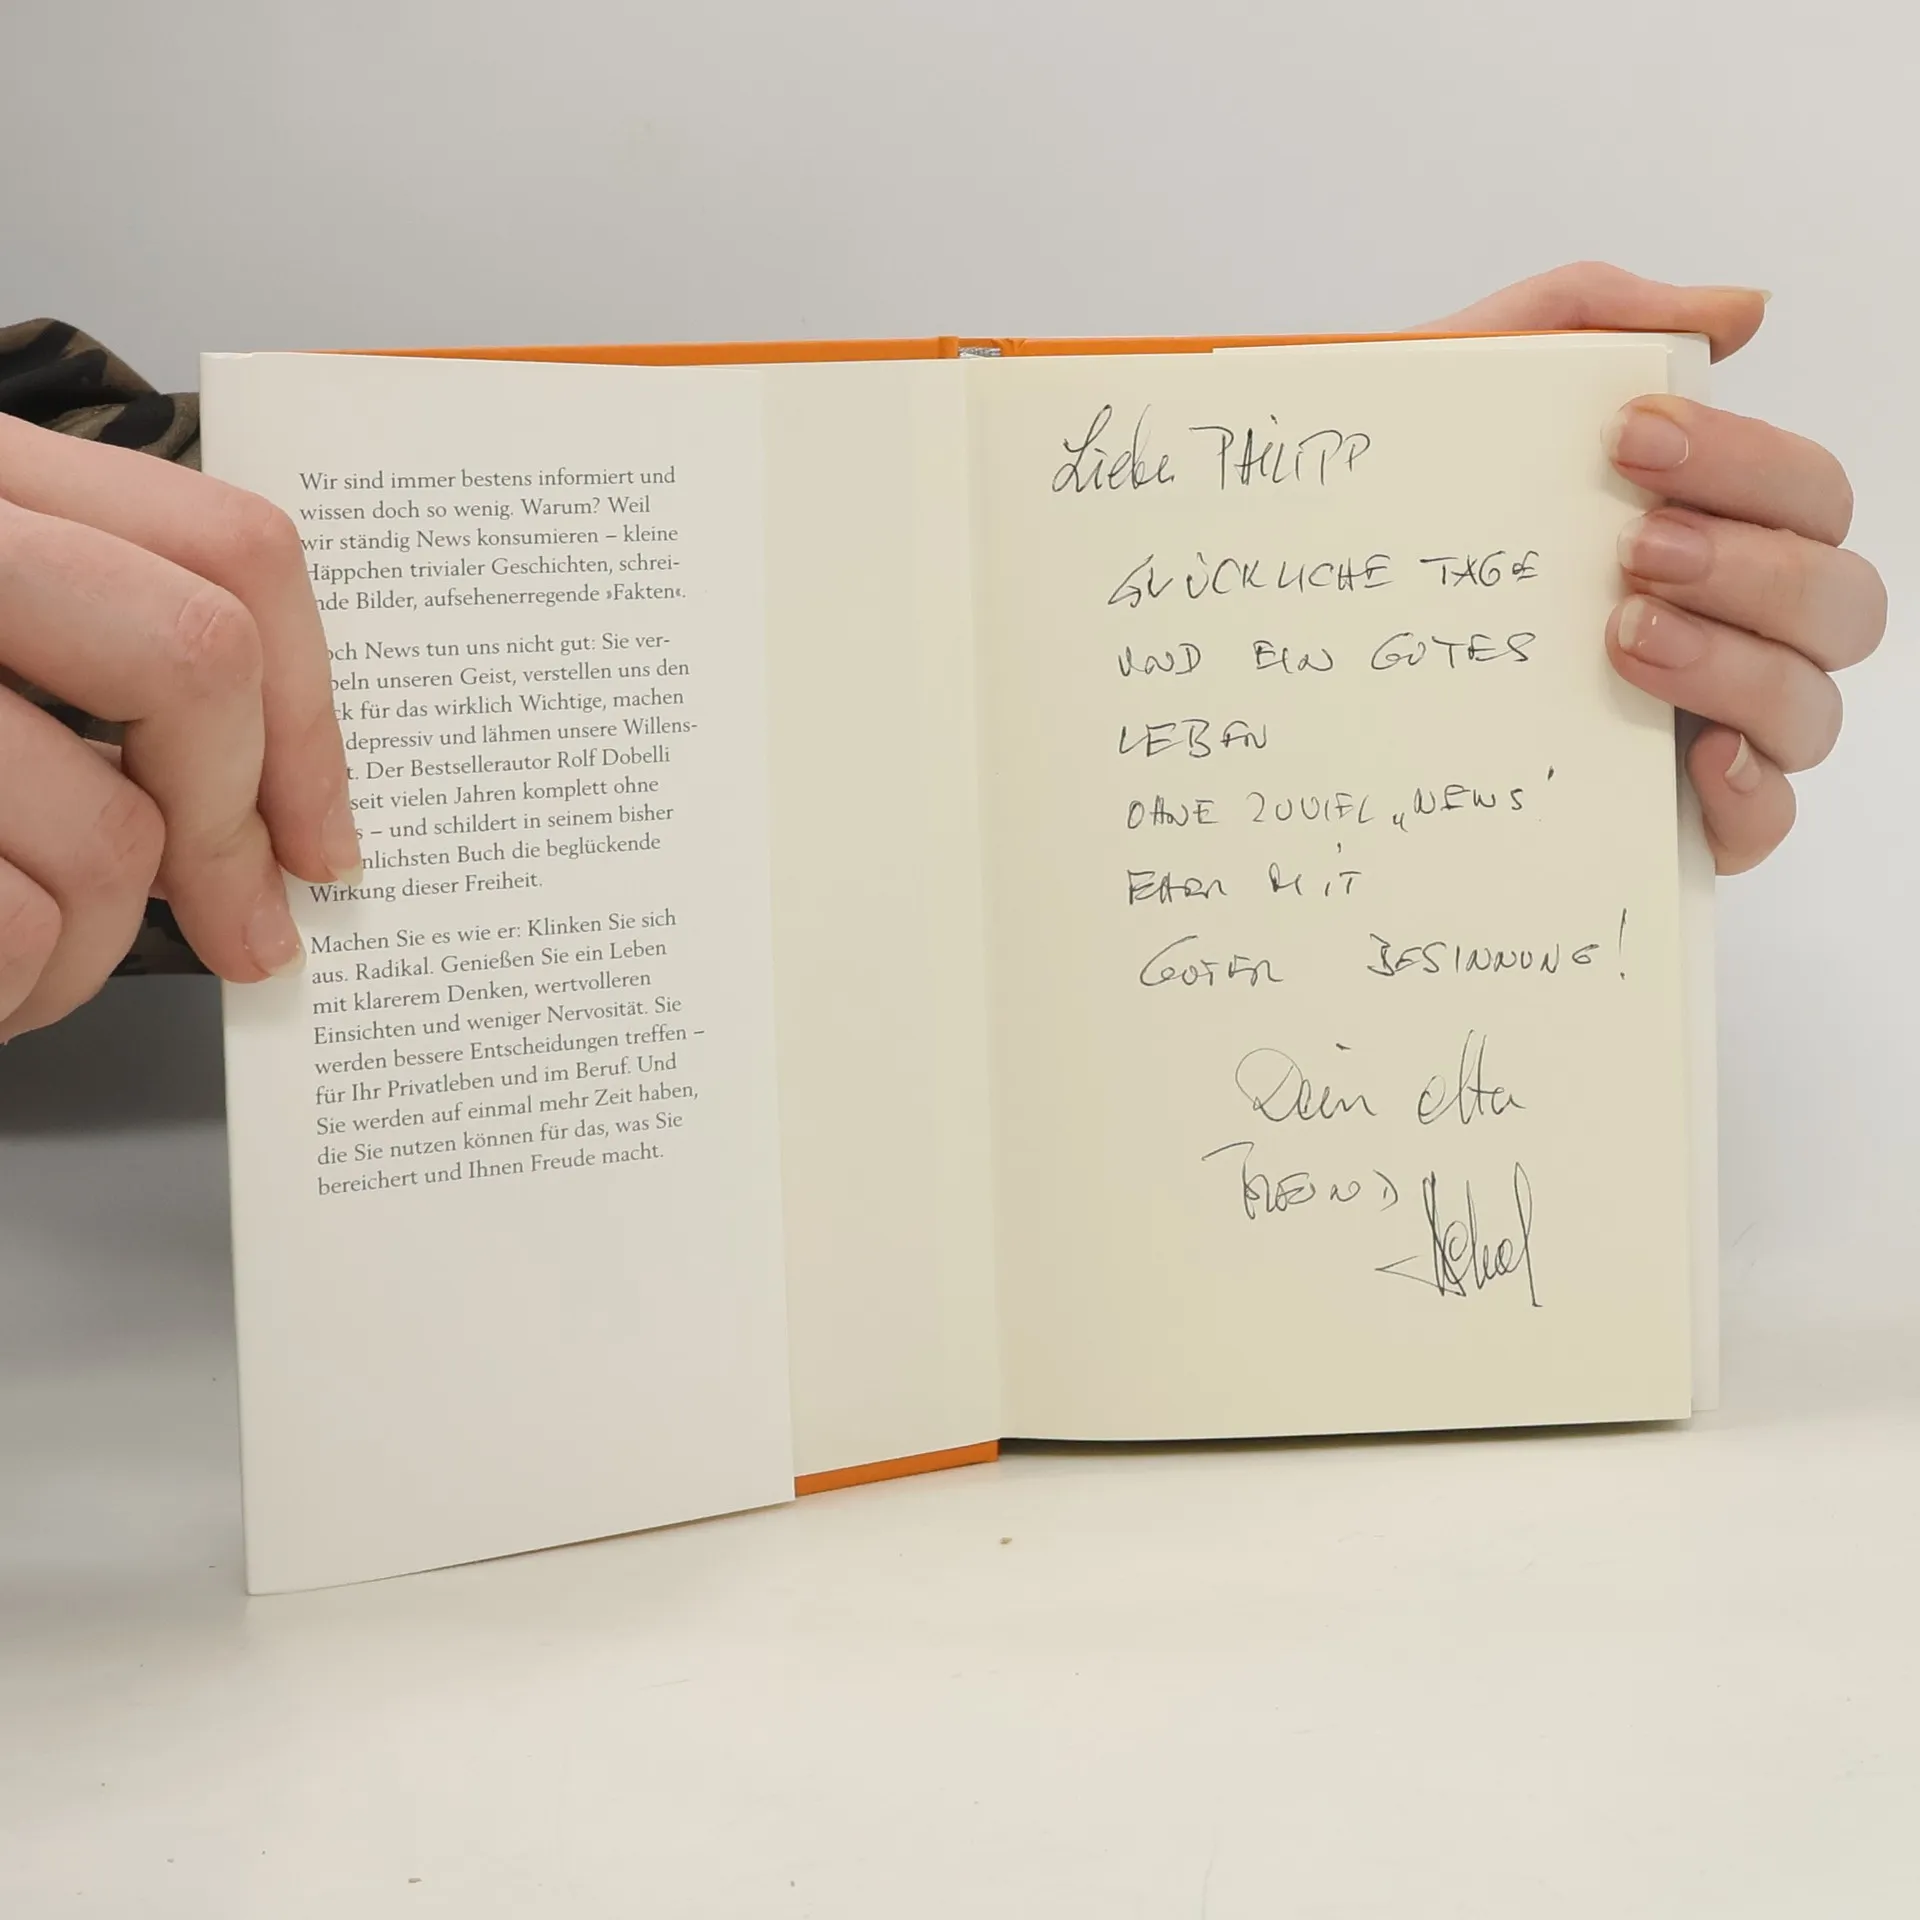 Wir sind immer bestens informiert und
wissen doch so wenig. Warum? Weil
wir ständig News konsumieren – kleine
Häppchen trivialer Geschichten, schrei-
nde Bilder, aufsehenerregende »Fakten«.
och News tun uns nicht gut: Sie ver-
beln unseren Geist, verstellen uns den
ck für das wirklich Wichtige, machen
depressiv und lähmen unsere Willens-
t. Der Bestsellerautor Rolf Dobelli
seit vielen Jahren komplett ohne
s – und schildert in seinem bisher
nlichsten Buch die beglückende
Wirkung dieser Freiheit.
Machen Sie es wie er: Klinken Sie sich
aus. Radikal. Genießen Sie ein Leben
mit klarerem Denken, wertvolleren
Einsichten und weniger Nervosität. Sie
werden bessere Entscheidungen treffen –
für Ihr Privatleben und im Beruf. Und
Sie werden auf einmal mehr Zeit haben,
die Sie nutzen können für das, was Sie
bereichert und Ihnen Freude macht.
Lieber PHILIPP
GLÜCKLICHE TAGE
UND EIN GUTES
LEBEN
OHNE ZUVIEL „NEWS"
EHER MIT
GUTER BESINNUNG!
Dein alter
FREUND